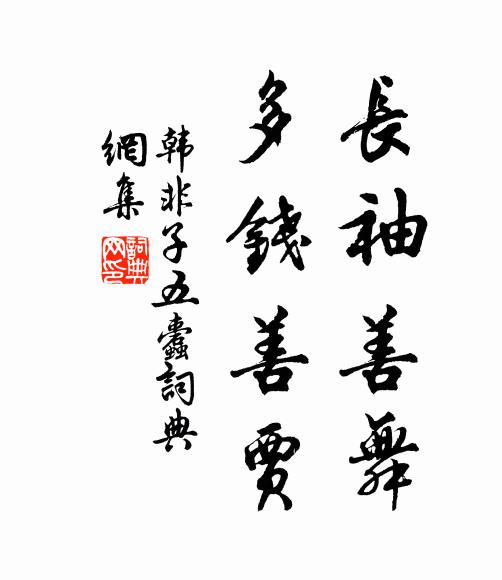 長袖善舞
多錢善賈
韩非子五蠹詞典
網集
詞典
网印